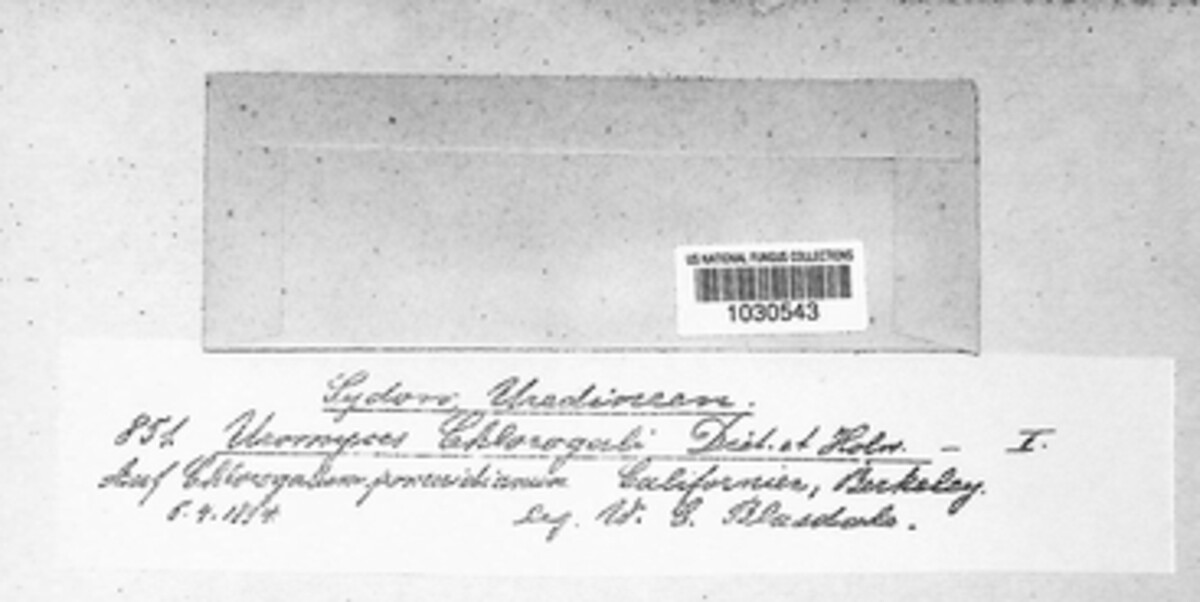 US NATIONAL FUNGUS COLLECTIONS
1030543
Sydow, Uredineen.
851. Uromyces Chlorogali Diet. et Holw. — I.
Auf Chlorogalum pomeridianum Californien, Berkeley.
4. 1894 leg. W. C. Blasdale.